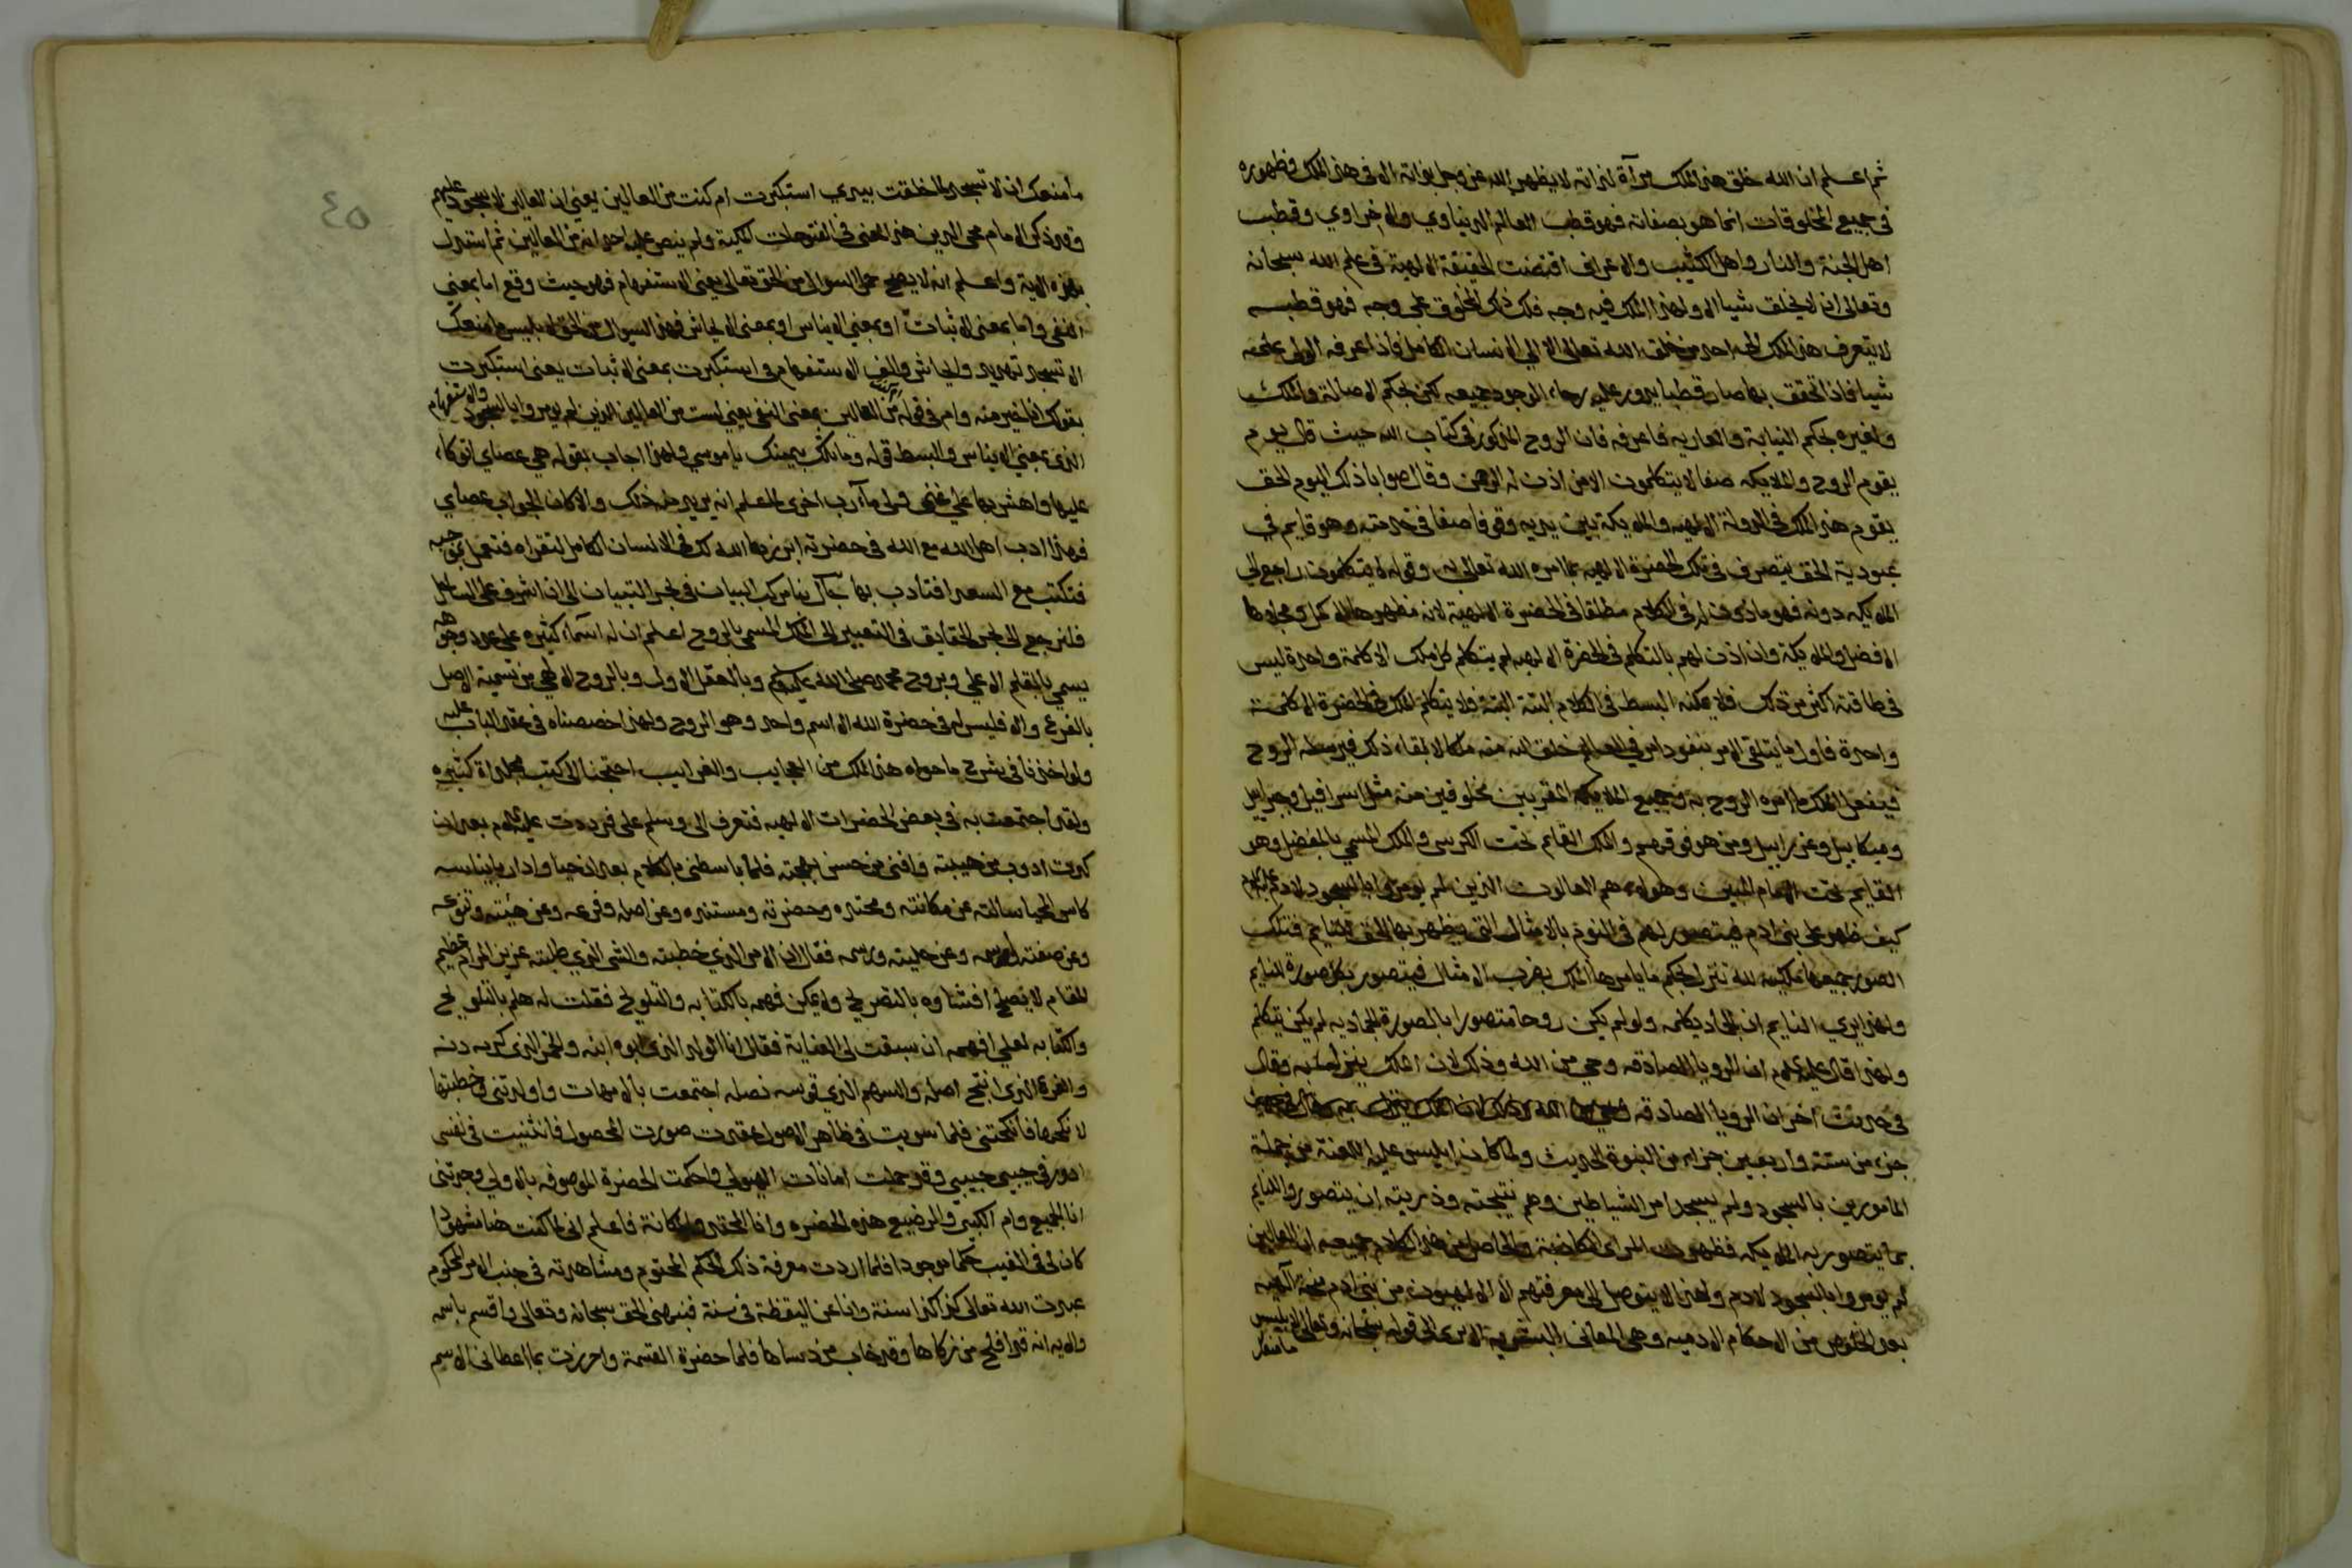 ثم اعلم ان الله خلق هذا الملك مرآة لذاته لا يظهر الله عز وجل بذاته الا في هذا الملك وظهوره
في جميع المخلوقات انما هو بصفاته فهو قطب العالم الدنياوي والاخراوي وقطب
اهل الجنة والنار واهل الكثيب والاعراف اقتضت الحقيقة الالهية في علم الله سبحانه
وتعالى ان لا يخلق شيا الا ولهذا الملك فيه وجه فلك ذلك المخلوق على وجهه فهو قطبه
لا يتعرف هذا الملك الى احد من خلق الله تعالى الا الى الانسان الكامل فاذا عرفه الولي علمه
شيا فاذا تحقق بها صار قطبا يدور عليه رحاء الوجود جميعه لكن بحكم الاصالة والملك
ولغيره بحكم النيابة والعاريه فاعرفه فان الروح المذكور في كتاب الله حيث قال يوم
يقوم الروح والملايكه صفا لا يتكلمون الا من اذن له الرحمن وقال صوابا ذلك اليوم الحق
يقوم هذا الملك في الدولة الالهيه والملايكة بين يديه وقوفا صفا في خدمته وهو قايم في
عبودية الحق يتصرف في تلك الحضرة الالهيه بما امره الله تعالى به وقوله لا يتكلمون راجع الى
الملايكه دونه فهو ماذون له في الكلام مطلقا في الحضرة الالهية لانه مظهرها الاكمل ومجلاها
الافضل والملايكة وان اذن لهم بالتكلم في الحضرة الالهيه لم يتكلم كل ملك الا كلمة واحدة ليس
في طاقته اكثر من ذلك فلا يمكنه البسط في الكلام البتة البتة فلا يتكلم الملك في الحضرة الا كلمة
واحدة فاول ما يتلقى الامر بنفوذ امر في العالم خلق الله منه ملكا لايقا بذلك فيرسله الروح
فيفعل الملك ما امره الروح به وجميع الملايكة المقربين مخلوقين منه مثل اسرافيل وجبرايل
وميكاييل وعزراييل ومن هو فوقهم والملك القايم تحت الكرسي والملك المسمي بالمفضل وهو
القايم تحت الامام المبين وهولاء هم العالون الذين لم يومروا بالسجود لادم عليه السلام
كيف ظهر على بني ادم فيتصور لهم في النوم بالامثال التي يظهر بها الحق للنايم فتلك
الصور جميعها ملايكة لله تنزل بحكم ما يامرها الملك بضرب الامثال فيتصور بكل صورة للنايم
ولهذا يري النايم ان الجماد يكلمه ولو لم يكن روحا متصورا بالصورة الجماديه لم يكن يتكلم
ولهذا قال عليه السلام ان الرويا الصادقه وحي من الله وذلك لان الملك ينزل به وقال
في حديث اخر ان الرويا الصادقه
جزء من ستة واربعين جزء من النبوة الحديث ولما كان ابليس عليه اللعنة من جملة
المامورين بالسجود ولم يسجد امر الشياطين وهم نتيجته وذريته ان يتصوروا للنايم
بما يتصور به الملايكه فظهرت المرائي الكاذبة والحاصل من هذا الكلام جميعه ان العالين
لم يومروا بالسجود لادم ولهذا لا يتوصل الى معرفتهم الا الالهيون من بني ادم منحة الهيه
بعد الخلوص من الاحكام الادميه وهي المعاني البشرية الا ترى الى قوله سبحانه وتعالى لابليس
ما منعك
٤٥
ما منعك ان لا تسجد لما خلقت بيدي استكبرت ام كنت من العالين يعني ان العالين لا سجود عليهم
وقد ذكر الامام محي الدين هذا المعنى في الفتوحات المكية ولم ينص على احد انه من العالين ثم استدل
بهذه الاية واعلم انه لا يصح حمل السوال من الحق تعالى بمعنى الاستفهام فهو حيث وقع اما بمعنى
النفي واما بمعنى الاثبات او بمعني الايناس او بمعنى الايحاش فهذا السوال من الحق لابليس ما منعك
ان تسجد تهديد وايحاش والف الاستفهام في استكبرت بمعنى الاثبات يعني استكبرت
بقولك انا خير منه وام في قوله ام كنت من العالين بمعنى النفي يعني لست من العالين الذين لم يومروا بالسجود والاستفهام
الذي بمعني الايناس والبسط قوله وما تلك بيمينك يا موسي ولهذا اجاب بقوله هي عصاي اتوكاء
عليها واهش بها على غنمي ولي فيها مآرب اخرى لما علم انه يريد منه ذلك والا كان الجواب عصاي
فهذا ادب اهل الله مع الله في حضرته ابرزها الله لك في الانسان الكامل لتقراه فتعمل بموجبه
فتكتب مع السعدا فتادب بها سال بنا مركب البيان في بحر التبيان الى ان اشرف على الساحل
فلنرجع الى بحر الحقايق في التعبير الى الملك المسمي بالروح اعلم ان له اسماء كثيره على عدد وجوهه
يسمي بالقلم الاعلي وبروح محمد صلى الله عليه وسلم وبالعقل الاول وبالروح الالهي من تسمية الاصل
بالفرع والا فليس له في حضرة الله الا اسم واحد وهو الروح ولهذا خصصناه في عقد الباب عليه
ولو اخذنا في شرح ما حواه هذا الملك من العجايب والغرايب احتجنا الى كتب مجلدات كثيره
ولقد اجتمعت به في بعض الحضرات الالهيه فتعرف الي وسلم علي فرددت عليه السلام بعد ان
كدت اذوب من هيبته وافنى من حسن بهجته فلما باسطني بالكلام بعد ان حيا وادار بايناسه
كاس الحميا سالته عن مكانته ومحتده وحضرته ومستنده وعن اصله وفرعه وعن هيئته ونوعه
وعن صفته واسمه وعن حليته ورسمه فقال ان الامر الذي خطبته والشي الذي طلبته عزيز المرام عظيم
المقام لا يصلح افشاوه بالتصريح ولا يمكن فهمه بالكنايه والتلويح فقلت له هلم بالتلويح
والكنايه لعلي افهمه ان سبقت لي العناية فقال انا الولد الذي ابوه ابنه والخمر الذي كرمه دنه
والفرع الذي انتج اصله والسهم الذي قوسه نصله اجتمعت بالامهات واولدتني وخطبتها
لانكحها فانكحتني فلما سريت في ظاهر الاصول عقدت صورت المحصول فانثنيت في نفسي
ادور في حبيبي وقد حملت امانات الهيولي واحكمت الحضرة الموصوفه بالاولي وجدتني
انا الجميع وام الكبير والرضيع هذه الحضره وانا المحتد والمكانة فاعلم اني لما كنت مشهودا
كان لي في الغيب حكما موجودا فلما اردت معرفة ذلك الحكم المحتوم ومشاهدته في جنب الامر المحكوم
عبدت الله تعالى كذا كذا سنة وانا عن اليقظة في سنة فنبهني الحق سبحانه وتعالى واقسم باسمه
والايه انه قد افلح من زكاها وقد خاب من دساها فلما حضرة القسمة واحرزت بما اعطاني الاسم